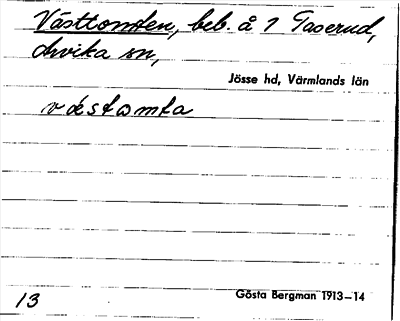 Västtomten, beb. å 7 Taserud,
Arvika sn,
Jösse hd, Värmlands län
västomta
13
Gösta Bergman 1913–14